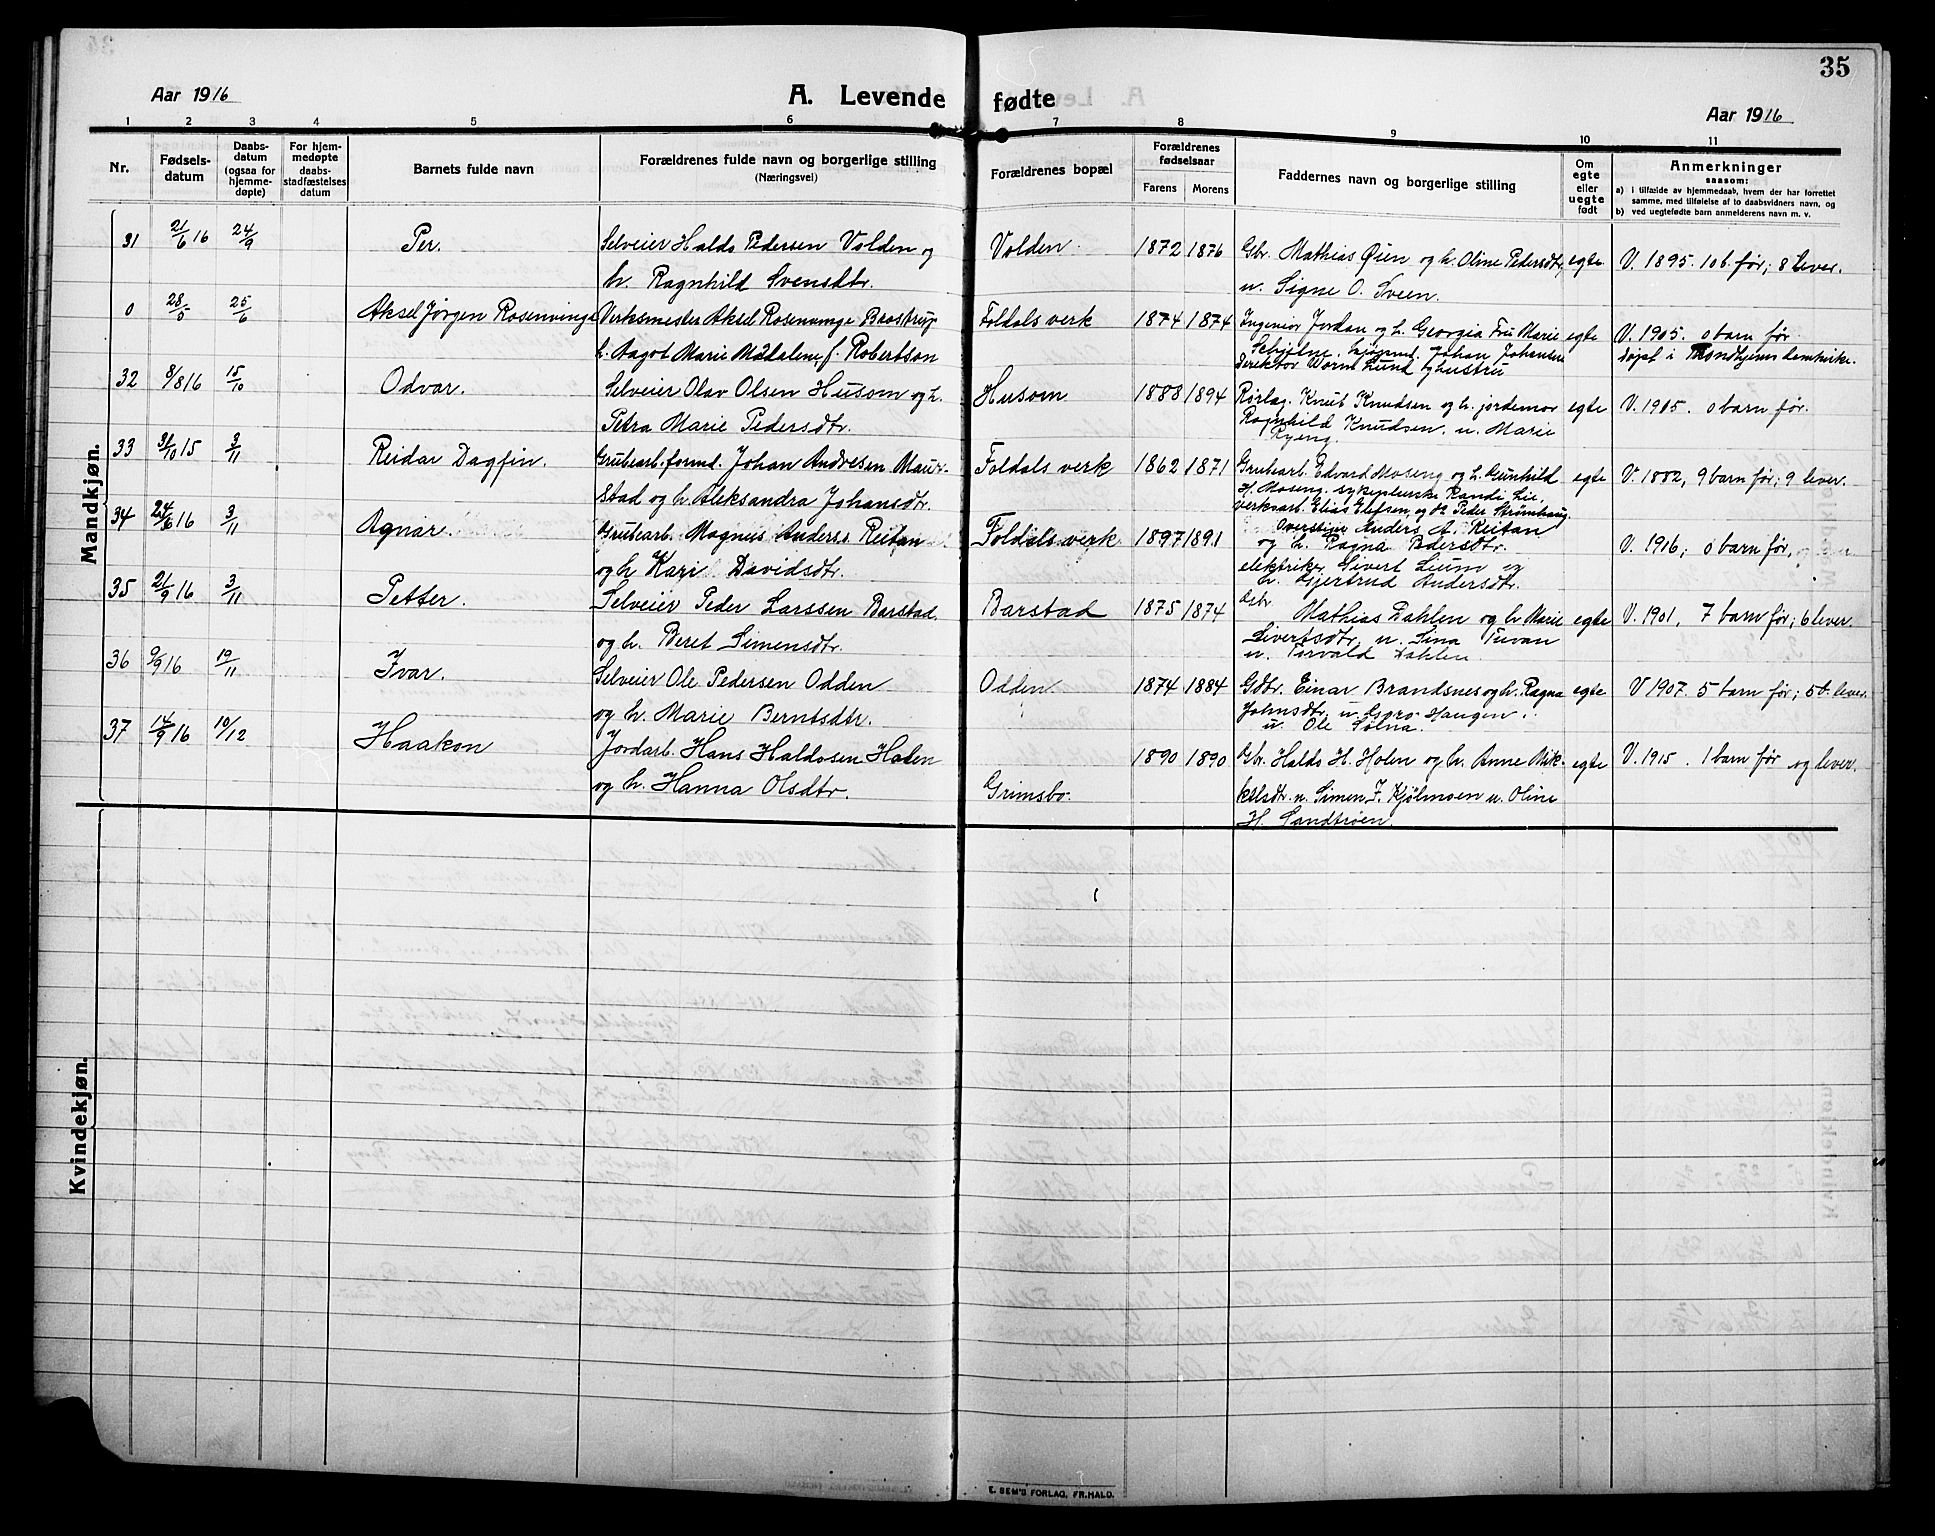 35
Aar 1916
A. Levende fødte
Aar 1916
1 2 3 4 5 6 7 8 9 10 11
Nr.
Fødsels-
datum
Daabs-
datum
(ogsaa for
hjemme-
døpte)
For hjem-
medøpte
daabs-
stadfæstelses
datum
Barnets fulde navn
Forældrenes fulde navn og borgerlige stilling
(Næringsvei)
Forældrenes bopæl
Forældrenes
fødselsaar
Farens Morens
Faddernes navn og borgerlige stilling
Om
egte
eller
uegte
født
Anmerkninger
saasom:
a) i tilfælde av hjemmedaab, hvem der har forrettet
samme, med tilføielse af to daabsvidners navn, og
b) ved uegtefødte barn anmelderens navn m. v.
Mandkjøn.
31 21/6 16 24/9 Per. Selveier Halds Pedersen Volden og Volden. 1872 1876 Gbr. Mathias Øien og h. Oline Pedersdtr, egte V. 1895. 10 b. før; 8 lever.
h. Ragnhild Svensdtr. u. Signe O. Sveen.
0 28/5 25/6 Aksel Jørgen Rosenvinge Verksmester Aksel Rosenvinge Baastrup Foldals verk 1874 1874 Ingeniør Jordan og h. Georgia Fru Marie egte V. 1905. 0 barn før
h. Aagot Marie Madalene f. Robertson Johan Johansen døpt i Trondhjems domkirke.
Direktør Worm Lund
32 8/8 16 15/10 Odvar. Selveier Olav Olsen Husom og h. Husom 1888 1894 Rørlag. Knut Knudsen og h. jordemor egte V. 1905. 0 barn før.
Petra Marie Pedersdtr. Ragnhild Knudsen. u. Marie
Ryeng.
33 31/10 15 3/11 Reidar Dagfin. Grubearb. formd. Johan Andresen Maur- Foldals verk 1862 1871 Grubearb. Edvard Moseng og h. Gunhild egte V. 1882, 9 barn før; 9 lever.
stad og h. Aleksandra Johansdtr. H. Moseng. sykepleierske Randi Lie,
verksarb. Elias Elefsen, og Peder
34 24/6 16 3/11 Agnar. Grubearb. Magnus Anders. Reitan Foldals verk 1897 1891 Overstiger Anders A. Reitan V. 1916; 0 barn før,
og h Kari Davidsdtr. og h. Ragna Pedersdtr.
elektriker Sivert Lium og
h. Gjertrud Andersdtr.
35 21/9 16 3/11 Petter. Selveier Peder Larssen Barstad. Barstad 1875 1874 Gbr. Mathias Dahlen og h Marie egte V. 1901, 7 barn før; 6 lever
og h. Beret Simensdtr. Sivertsdtr, u. Sina Tuvan
u. Torvald Dahlen
36 9/9 16 19/11 Ivar. Selveier Ole Pedersen Odden Odden. 1874 1884 Gdbr. Einar Brandsnes og h. Ragna egte V 1907. 5 barn før; 5 b. lever.
og h. Marie Berntsdtr. Johnsdtr. u. Guro Haugen.
u. Ole Solna.
37 14/9 16 10/12 Haakon Jordarb. Hans Haldosen Holen 1890 1890 Gbr. Halds H. Holen og h. Anne Mik- egte V. 1915. 1 barn før og lever.
og h. Hanna Olsdtr. Grimsbo. kelsdtr. u. Simen J. Kjølmoen u. Oline
H. Sandtrøen.
Kvindekjøn.
E. SEM'S FORLAG, FR.HALD.